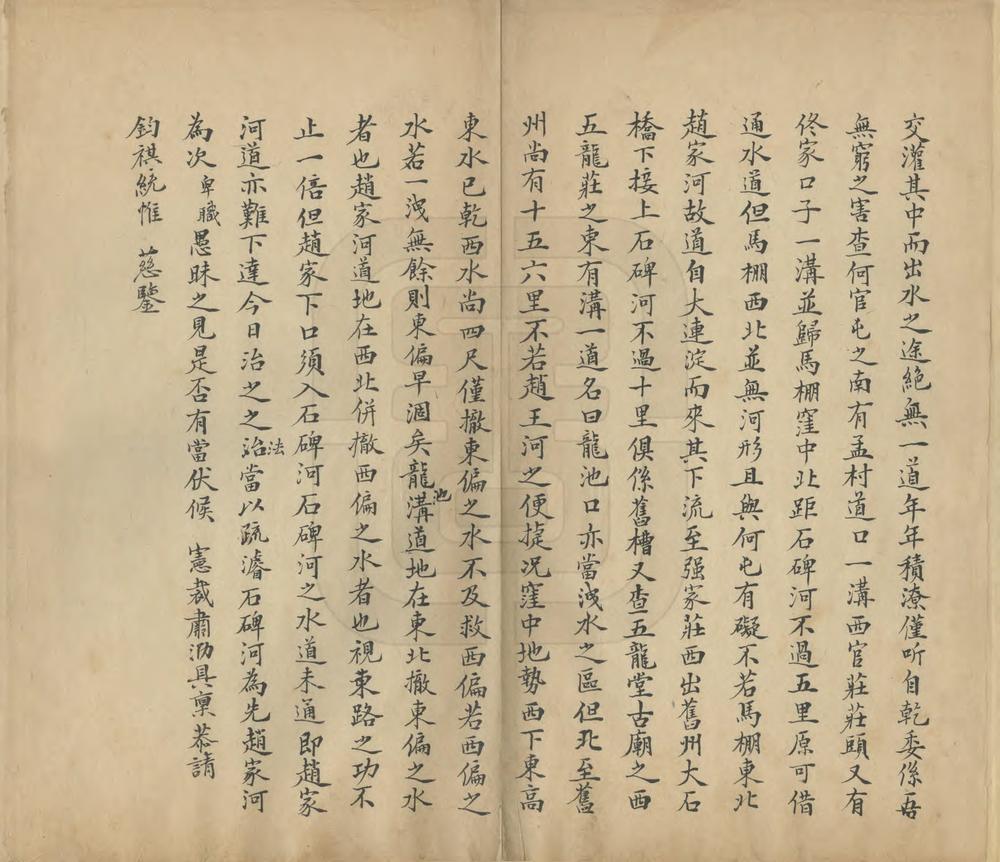 交灌其中而出水之途絶無一道年年積潦僅听自乾委係吾
無窮之害查何官屯之南有孟村道口一溝西官莊莊頭又有
佟家口子一溝並歸馬棚窪中北距石碑河不過五里原可借
通水道但馬棚西北並無河形且與何屯有礙不若馬棚東北
趙家河故道自大連淀而來其下流至强家莊西出舊州大石
橋下接上石碑河不過十里俱係舊槽又查五龍堂古廟之西
五龍莊之東有溝一道名曰龍池口亦當洩水之區但北至舊
州尚有十五六里不若趙王河之便捷况窪中地勢西下東高
東水已乾西水尚四尺僅撤東偏之水不及救西偏若西偏之
水若一洩無餘則東偏早涸矣龍池溝道地在東北撤東偏之水
者也趙家河道地在西北併撤西偏之水者也視東路之功不
止一倍但趙家下口須入石碑河石碑河之水道未通即趙家
河道亦難下達今日治之之治法當以疏濬石碑河為先趙家河
為次卑職愚昧之見是否有當伏候 憲裁肅泐具稟恭請
鈞祺統惟 慈鑒